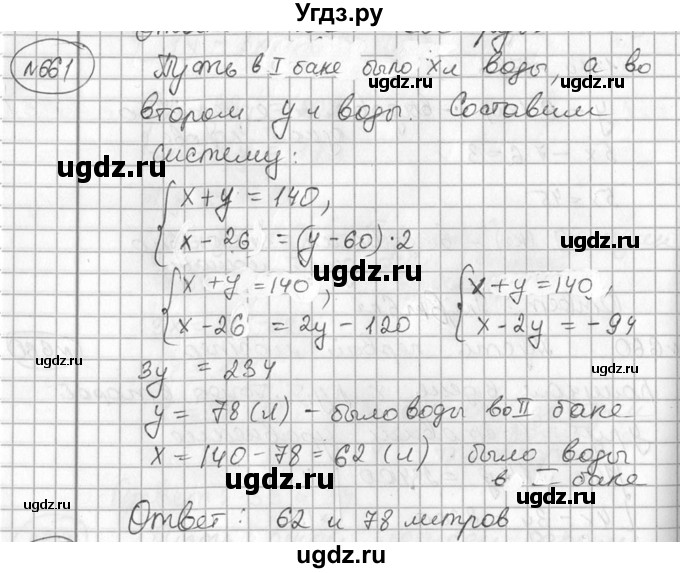 Угдз.ру
№661
Пусть в I баке было x л воды, а во
втором y л воды. Составим
систему:
{ x + y = 140,
{ x - 26 = (y - 60) · 2
{ x + y = 140, { x + y = 140,
{ x - 26 = 2y - 120 { x - 2y = -94
3y = 234
y = 78 (л) - было воды во II баке
x = 140 - 78 = 62 (л) было воды
в I баке
Ответ: 62 и 78 литров
ugdz.ru
ugdz.ru
ugdz.ru
ugdz.ru
ugdz.ru
ugdz.ru
ugdz.ru
ugdz.ru
ugdz.ru
ugdz.ru
ugdz.ru
ugdz.ru
ugdz.ru